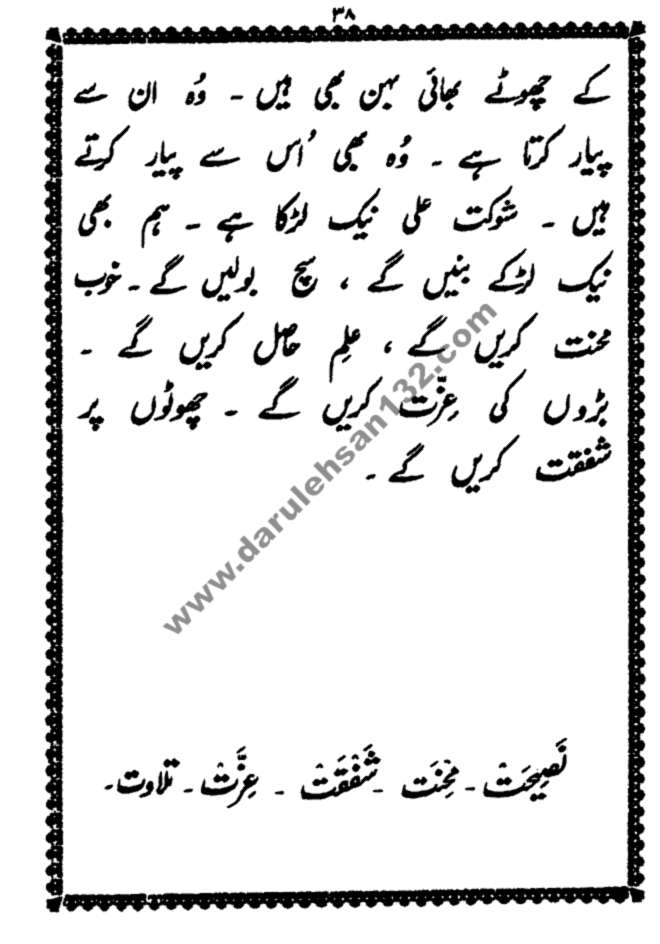 ۳۸
کے چھوٹے بھائی بہن بھی ہیں ۔ وُہ ان سے
پیار کرتا ہے ۔ وُہ بھی اُس سے پیار کرتے
ہیں ۔ شوکت علی نیک لڑکا ہے ۔ ہم بھی
نیک لڑکے بنیں گے ، سچ بولیں گے ۔ خوب
محنت کریں گے ، عِلم حاصل کریں گے ۔
بڑوں کی عِزّت کریں گے ۔ چھوٹوں پر
شفقت کریں گے ۔
www.darulehsan132.com
نَصِیْحَتْ ۔ مِحْنَت ۔ شَفْقَتْ ۔ عِزَّتْ ۔ تلاوت ۔